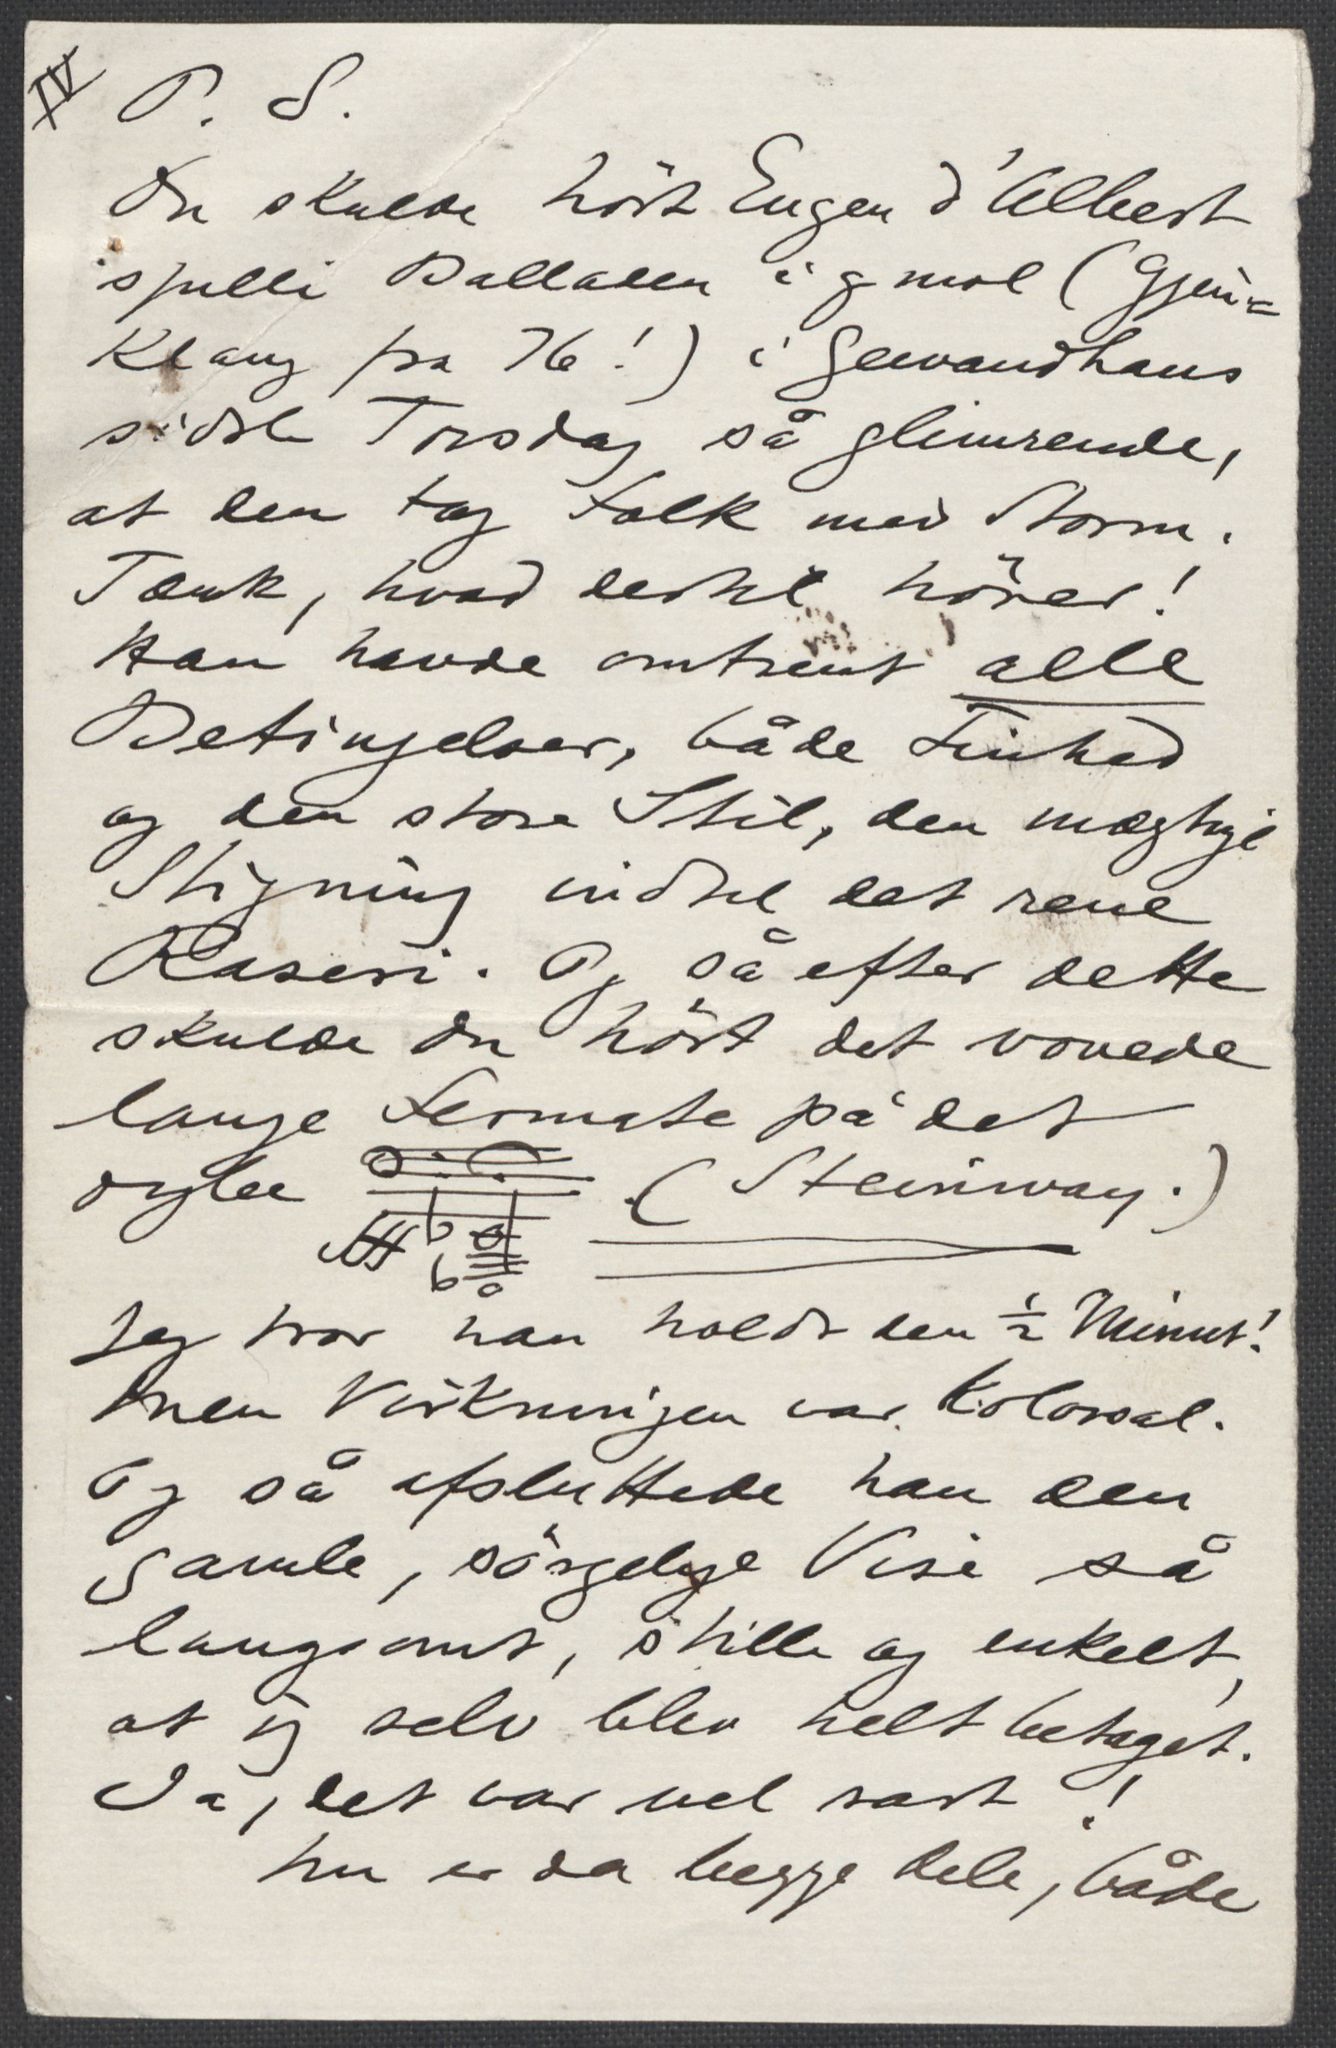 IV P. S.
Du skulde hört Eugen d'Albert
spille Balladen i g mol (Gjen=
klang fra 76!) i Gewandhaus
sidste Torsdag så glimrende,
at den tog Folk med Storm.
Tænk, hvad dertil hörer!
Han havde omtrent alle
Betingelser, både Finhed
og den store Stil, den mægtige
Stigning indtil det rene
Raseri. Og så efter dette
skulde du hört det vovede
lange Fermate på det
dybe (Steinway.)
Jeg tror han holdt den ½ Minut!
Men Virkningen var kolossal.
Og så afsluttede han den
gamle, sörgelige Vise så
langsomt, stille og enkelt,
at jeg selv blev helt betaget.
Ja, det var vel rart!
Nu er da begge dele, både